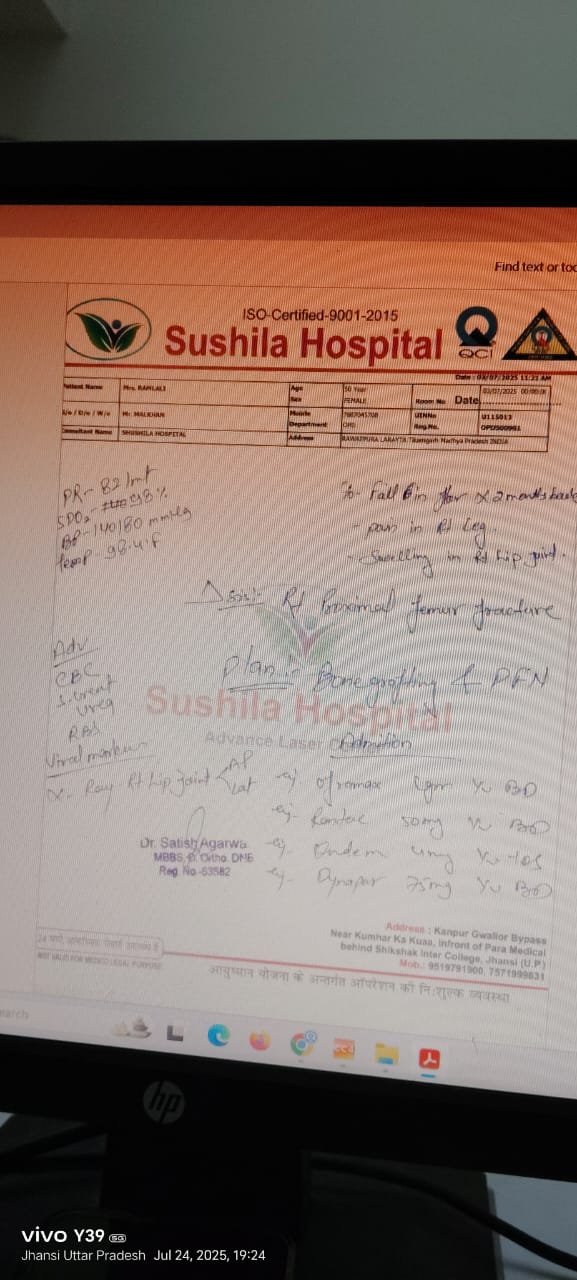 Find text or too
ISO-Certified-9001-2015
Sushila Hospital
QCI
Date : 03/07/2025 11:21 AM
Patient Name Mrs. RAMLALI Age 50 Year 03/07/2025 00:00:00
Sex FEMALE Room No Date
S/o / D/o / W/o Mr. MALKHAN Mobile UINNo U115013
Department OPD Reg.No. OPD500991
Consultant Name SHUSHILA HOSPITAL Address Tikamgarh Madhya Pradesh INDIA
PR- 82/mt
SPO2- 98%
BP- 140/80 mmHg
Temp- 98.4°F
c/o- Fall x 2 months back
- pain in Rt Leg.
- Swelling in Rt hip joint.
Rt Proximal femur fracture
Adv
CBC
S. Creat
Urea
RBS
Viral marker
Plan :- Bone grafting & PFN
Sushila Hospital
Advance Laser
Admition
X-Ray Rt hip joint AP Lat
1gm BD
50mg BD
4mg
Dynapar 75mg BD
Dr. Satish Agarwa
MBBS, D. Ortho. DNB
Reg. No.-63582
Address : Kanpur Gwalior Bypass
Near Kumhar Ka Kuaa, Infront of Para Medical
behind Shikshak Inter College, Jhansi (U.P.)
Mob.: 9519791900, 7571999831
NOT VALID FOR MEDICO LEGAL PURPOSE
आयुष्मान योजना के अन्तर्गत ऑपरेशन की निःशुल्क व्यवस्था
earch
hp
vivo Y39 5G
Jhansi Uttar Pradesh Jul 24, 2025, 19:24